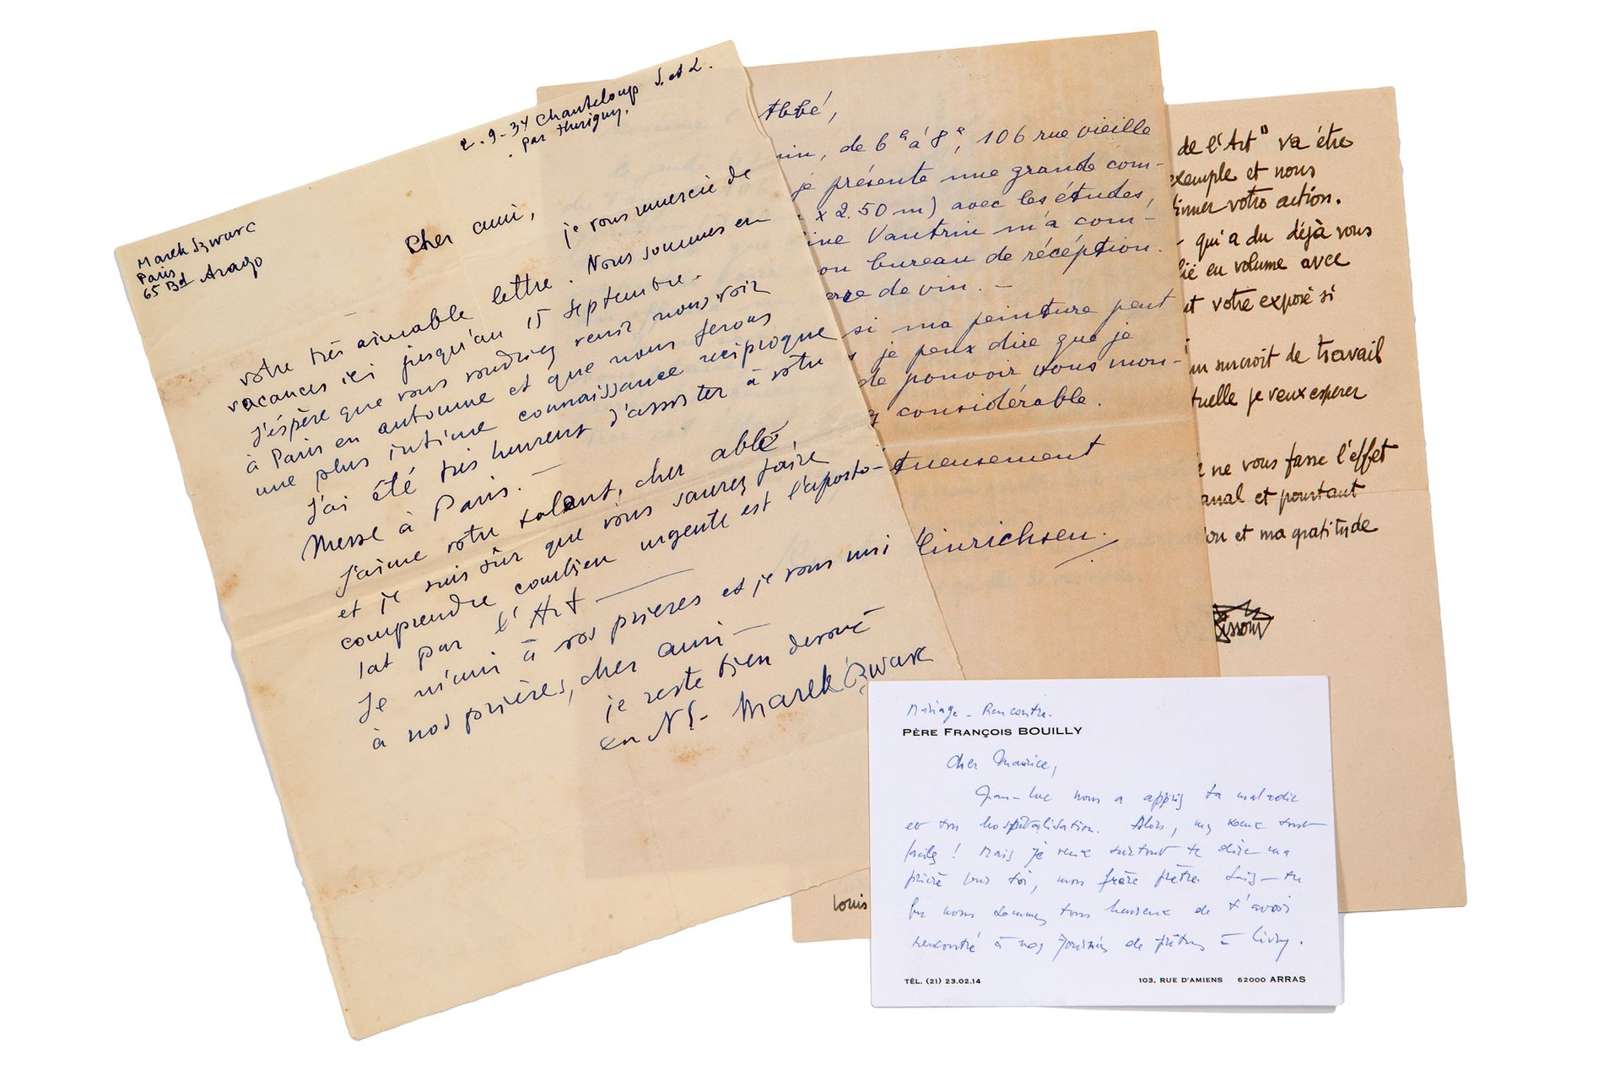 2-9-34 Chanteloup S. et L.
par Thurigny.
Marek Szwarc
Paris
65 Bd Arago
Cher ami,
je vous remercie de
votre très aimable lettre. Nous sommes en
vacances ici jusqu'au 15 septembre.
J'éspère que vous voudriez venir nous voir
à Paris en automne et que nous ferons
une plus intime connaissance réciproque
J'ai été très heureux d'assister à votre
Messe à Paris. —
J'aime votre talent, cher abbé,
et je suis sûr que vous saurez faire
comprendre combien urgente est l'aposto-
lat par l'Art —
Je m'uni à vos prières et je vous uni
à nos prières, cher ami —
je reste bien dévoué
en N.S. Marek Szwarc
Abbé,
de 6h à 8h, 106 rue vieille
je présente une grande com-
x 2.50 m) avec les études,
Vautrin m'a com-
bureau de réception.
de vin. —
si ma peinture peut
je peux dire que je
de pouvoir vous mon-
considérable.
tueusement
Hinrichsen.
de l'Art" va être
exemple et nous
votre action.
- qui a du déjà vous
en volume avec
votre exposé si
un surcroit de travail
je veux esperer
ne vous fasse l'effet
et pourtant
et ma gratitude
Louis
Mariage - Rencontre.
PÈRE FRANÇOIS BOUILLY
Cher Maurice,
Jean-Luc nous a appris ta maladie
et ton hospitalisation. Alors,
Mais je veux surtout te dire ma
prière pour toi, mon frère prêtre. Sais-tu
que nous sommes tous heureux de t'avoir
rencontré à nos journées de prêtres à
TÉL. (21) 23.02.14
103, RUE D'AMIENS 62000 ARRAS